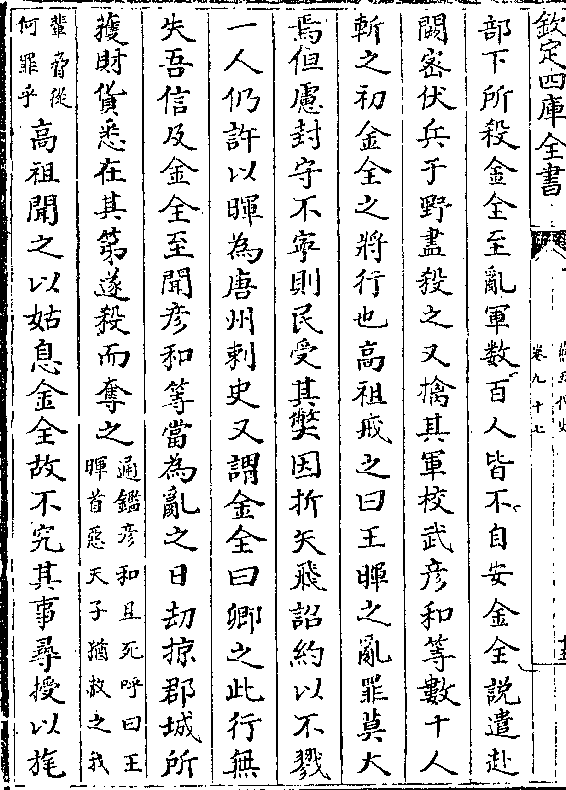 欽定四庫全書
卷九十七
部下所殺金全至亂軍數百人皆不自安金全說遣赴
闕密伏兵于野盡殺之又擒其軍校武彦和等數十人
斬之初金全之將行也高祖戒之曰王暉之亂罪莫大
焉但慮封守不寧則民受其獘因折矢飛詔約以不戮
一人仍許以暉為唐州刺史又謂金全曰卿之此行無
失吾信及金全至聞彦和等當為亂之日刦掠郡城所
獲財貨悉在其第遂殺而奪之通鑑彦和且死呼曰王
暉首惡天子猶赦之我
輩脅從
何罪乎高祖聞之以姑息金全故不究其事尋授以旄